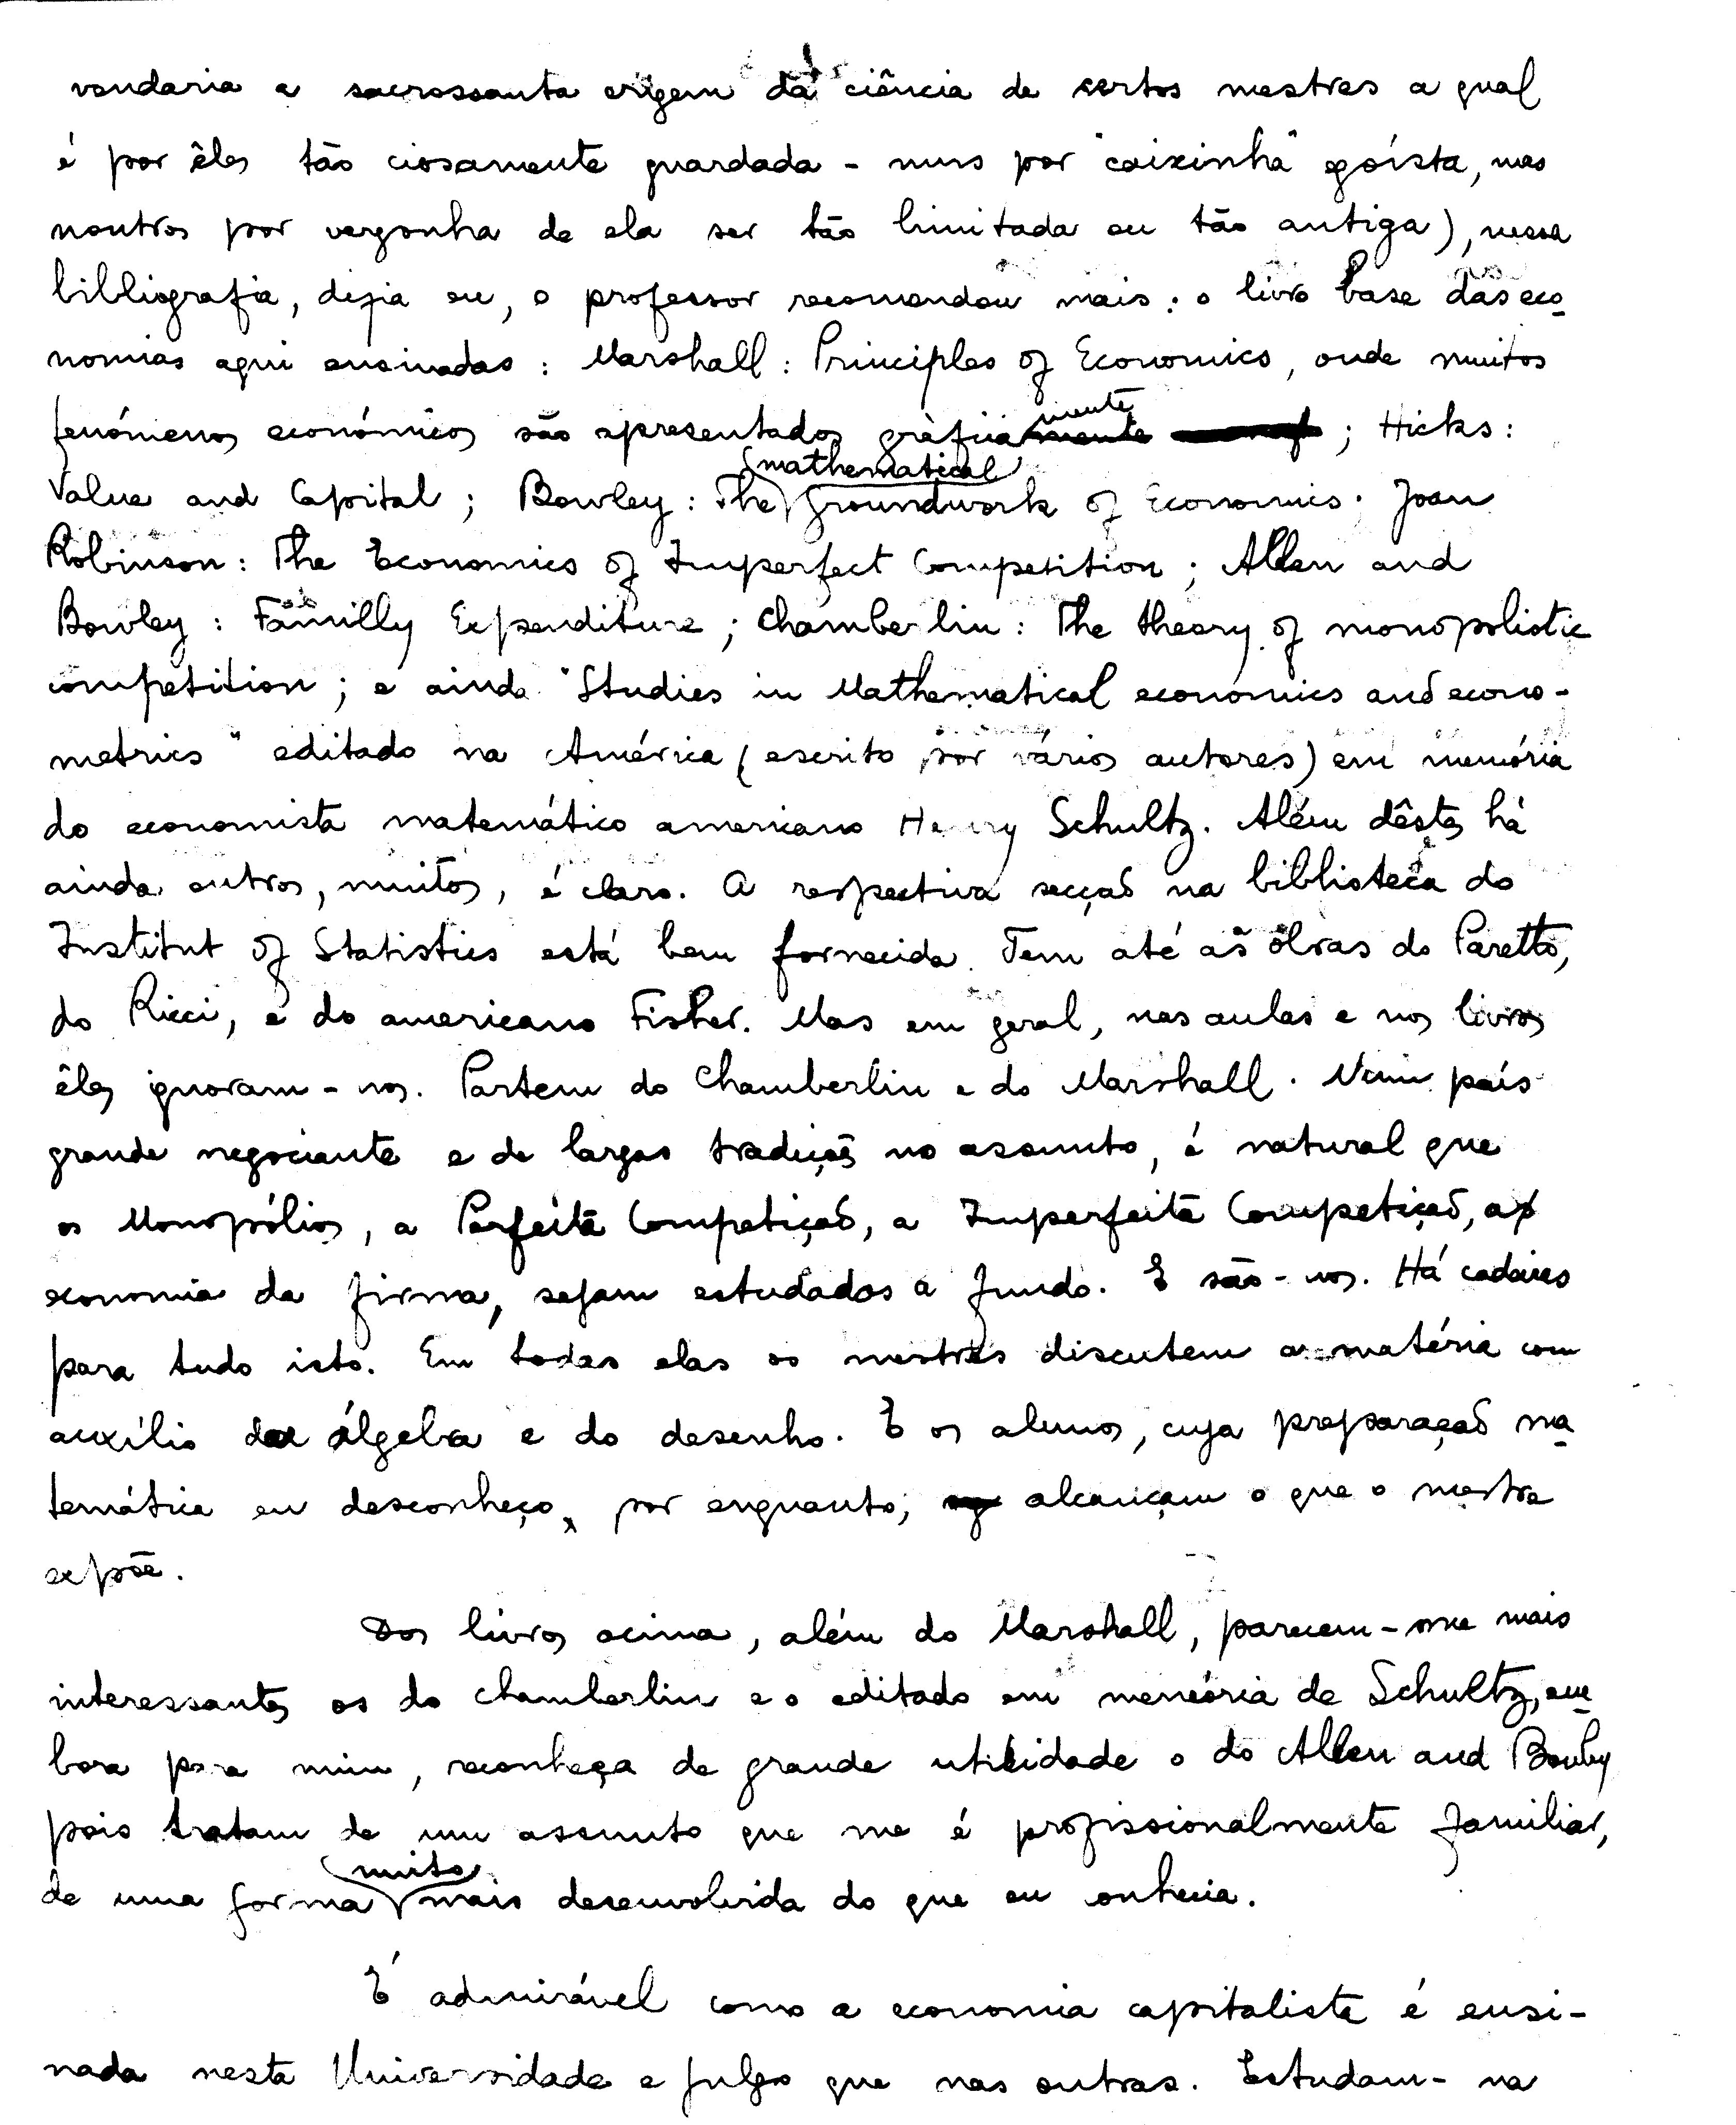 vendaria a sacrossanta origem da ciência de certos mestres a qual
é por êles tão ciosamente guardada - nuns por "caixinha" egoísta, mas
noutros por vergonha de ela ser tão limitada ou tão antiga), nessa
bibliografia, dizia eu, o professor recomendou mais: o livro base das eco
nomias aqui ensinadas: Marshall: Principles of Economics, onde muitos
fenómenos económicos são apresentados gràficamente; Hicks:
Value and Capital; Bowley: The mathematical groundwork of Economics; Joan
Robinson: The Economics of Imperfect Competition; Allen and
Bowley: Familly Expenditure; Chamberlin: The theory of monopolistic
competition; e ainda "Studies in Mathematical economics and econo-
metrics" editado na América (escrito por vários autores) em memória
do economista matemático americano Henry Schultz. Além dêstes há
ainda outros, muitos, é claro. A respectiva secção na biblioteca do
Institut of Statistics está bem fornecida. Tem até as obras do Paretto,
do Ricci, e do americano Fisher. Mas em geral, nas aulas e nos livros
êles ignoram-nos. Partem do Chamberlin e do Marshall. Num país
grande negociante e de largas tradições no assunto, é natural que
os Monopólios, a Perfeita Competição, a Imperfeita Competição, a
economia da firma, sejam estudados a fundo. E são-nos. Há cadeiras
para tudo isto. Em todas elas os mestres discutem a matéria com
auxílio da álgebra e do desenho. E os alunos, cuja preparação ma
temática eu desconheço, por enquanto, alcançam o que o mestre
expõe.
Dos livros acima, além do Marshall, parecem-me mais
interessantes os do Chamberlin e o editado em memória de Schultz, em
bora para mim, reconheça de grande utilidade o do Allen and Bowley
pois tratam de um assunto que me é profissionalmente familiar,
de uma forma muito mais desenvolvida do que eu conhecia.
É admirável como a economia capitalista é ensi-
nada nesta Universidade e julgo que nas outras. Estudam-na